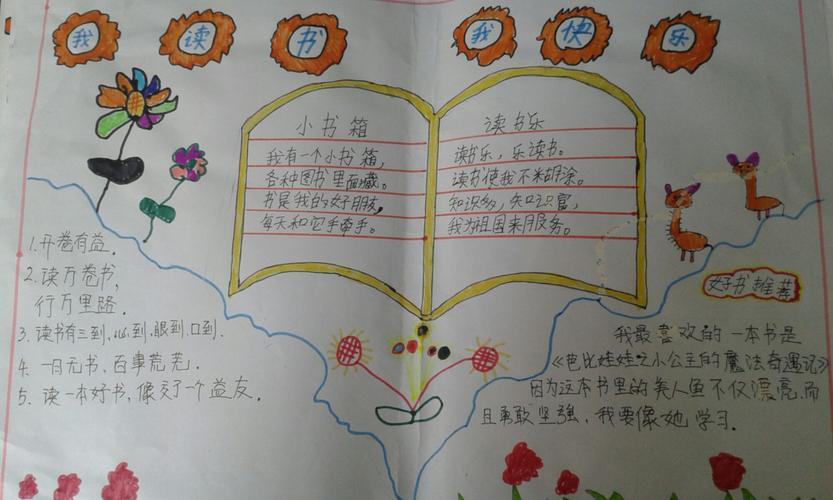 我读书 我快乐
小书箱
我有一个小书箱，
各种图书里面藏。
书是我的好朋友，
每天和它手牵手。
读书乐
读书乐，乐读书。
读书使我不糊涂。
知识多，知识富，
我为祖国来服务。
1.开卷有益。
2.读万卷书，
行万里路。
3.读书有三到，心到，眼到，口到.
4.一日无书，百事荒芜。
5.读一本好书，像交了一个益友.
好书推荐
我最喜欢的一本书是
《芭比娃娃之小公主的魔法奇遇记》
因为这本书里的美人鱼不仅漂亮.而
且勇敢坚强，我要像她学习.